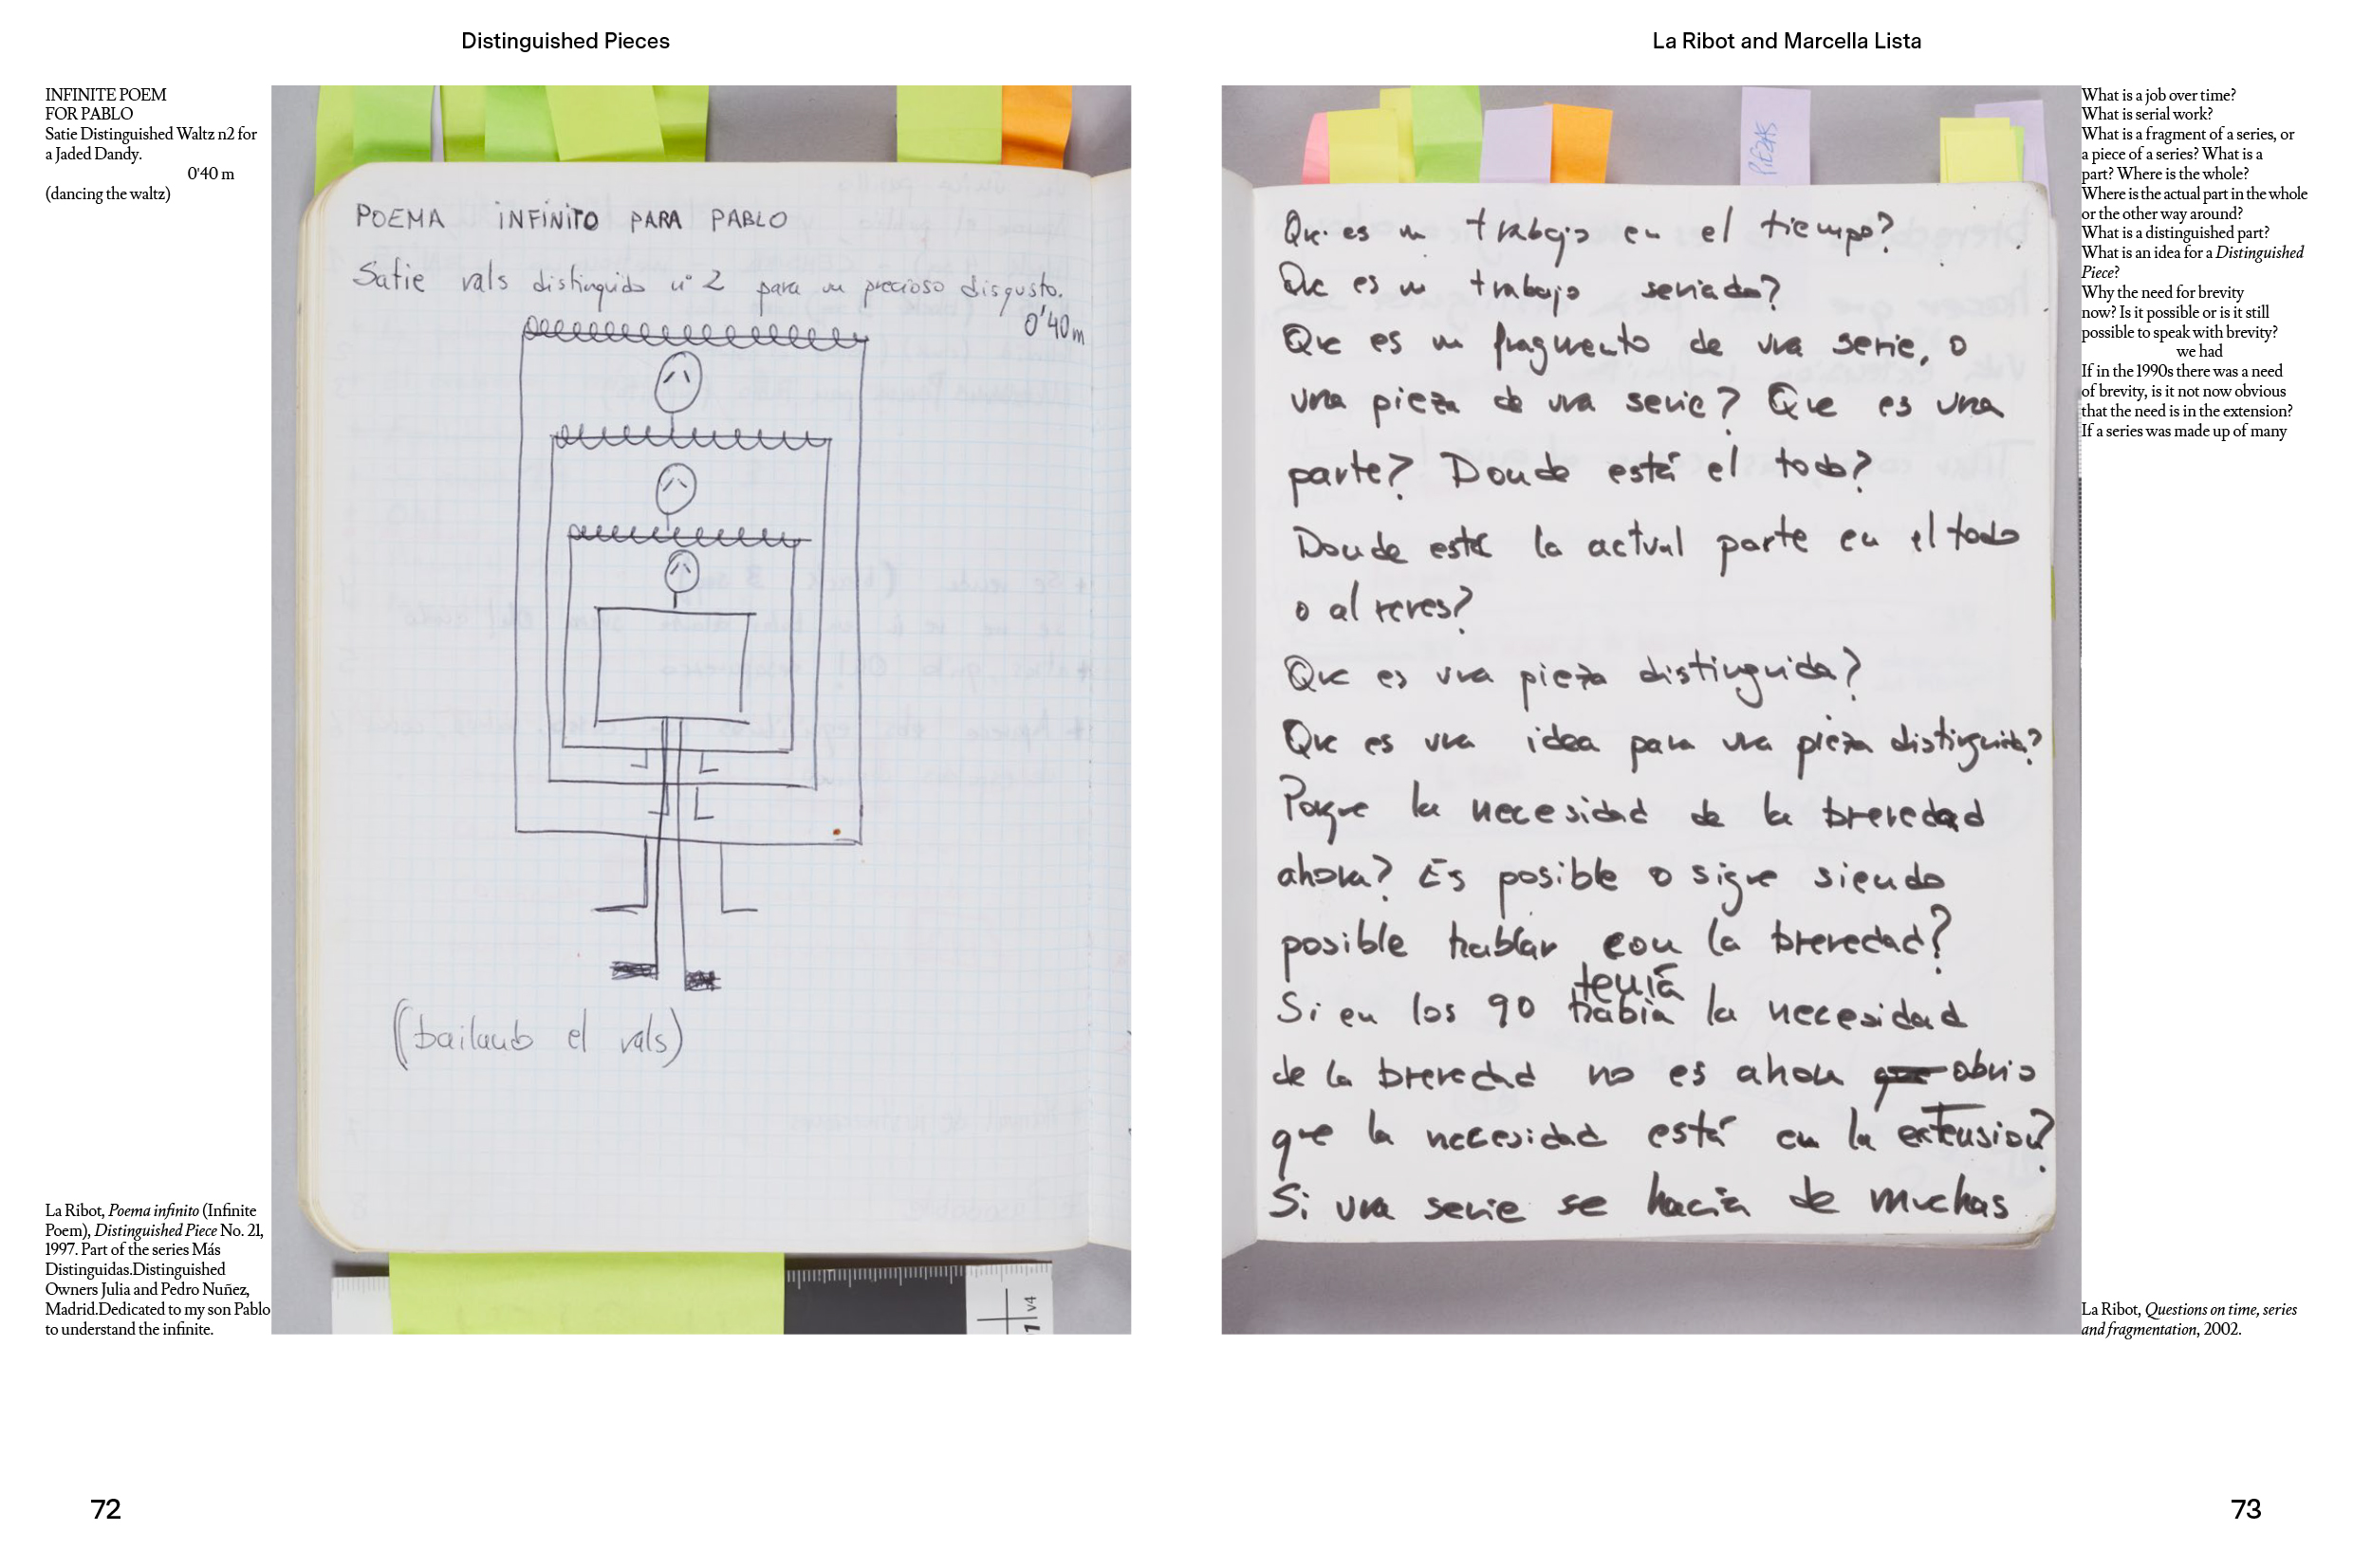 Distinguished Pieces
INFINITE POEM
FOR PABLO
Satie Distinguished Waltz n2 for
a Jaded Dandy.
0'40 m
(dancing the waltz)
POEMA INFINITO PARA PABLO
Satie vals distinguido nº 2 para un precioso disgusto.
0'40m
(bailando el vals)
La Ribot, Poema infinito (Infinite
Poem), Distinguished Piece No. 21,
1997. Part of the series Más
Distinguidas.Distinguished
Owners Julia and Pedro Nuñez,
Madrid.Dedicated to my son Pablo
to understand the infinite.
v4
72
La Ribot and Marcella Lista
PIEZAS
Que es un trabajo en el tiempo?
Que es un trabajo seriado?
Que es un fragmento de una serie, o
una pieza de una serie? Que es una
parte? Donde está el todo?
Donde está la actual parte en el todo
o al reves?
Que es una pieza distinguida?
Que es una idea para una pieza distinguida?
Porque la necesidad de la brevedad
ahora? Es posible o sigue siendo
posible hablar con la brevedad?
tenía
Si en los 90 había la necesidad
de la brevedad no es ahora que obvio
que la necesidad está en la extension?
Si una serie se hacía de muchas
What is a job over time?
What is serial work?
What is a fragment of a series, or
a piece of a series? What is a
part? Where is the whole?
Where is the actual part in the whole
or the other way around?
What is a distinguished part?
What is an idea for a Distinguished
Piece?
Why the need for brevity
now? Is it possible or is it still
possible to speak with brevity?
we had
If in the 1990s there was a need
of brevity, is it not now obvious
that the need is in the extension?
If a series was made up of many
La Ribot, Questions on time, series
and fragmentation, 2002.
73